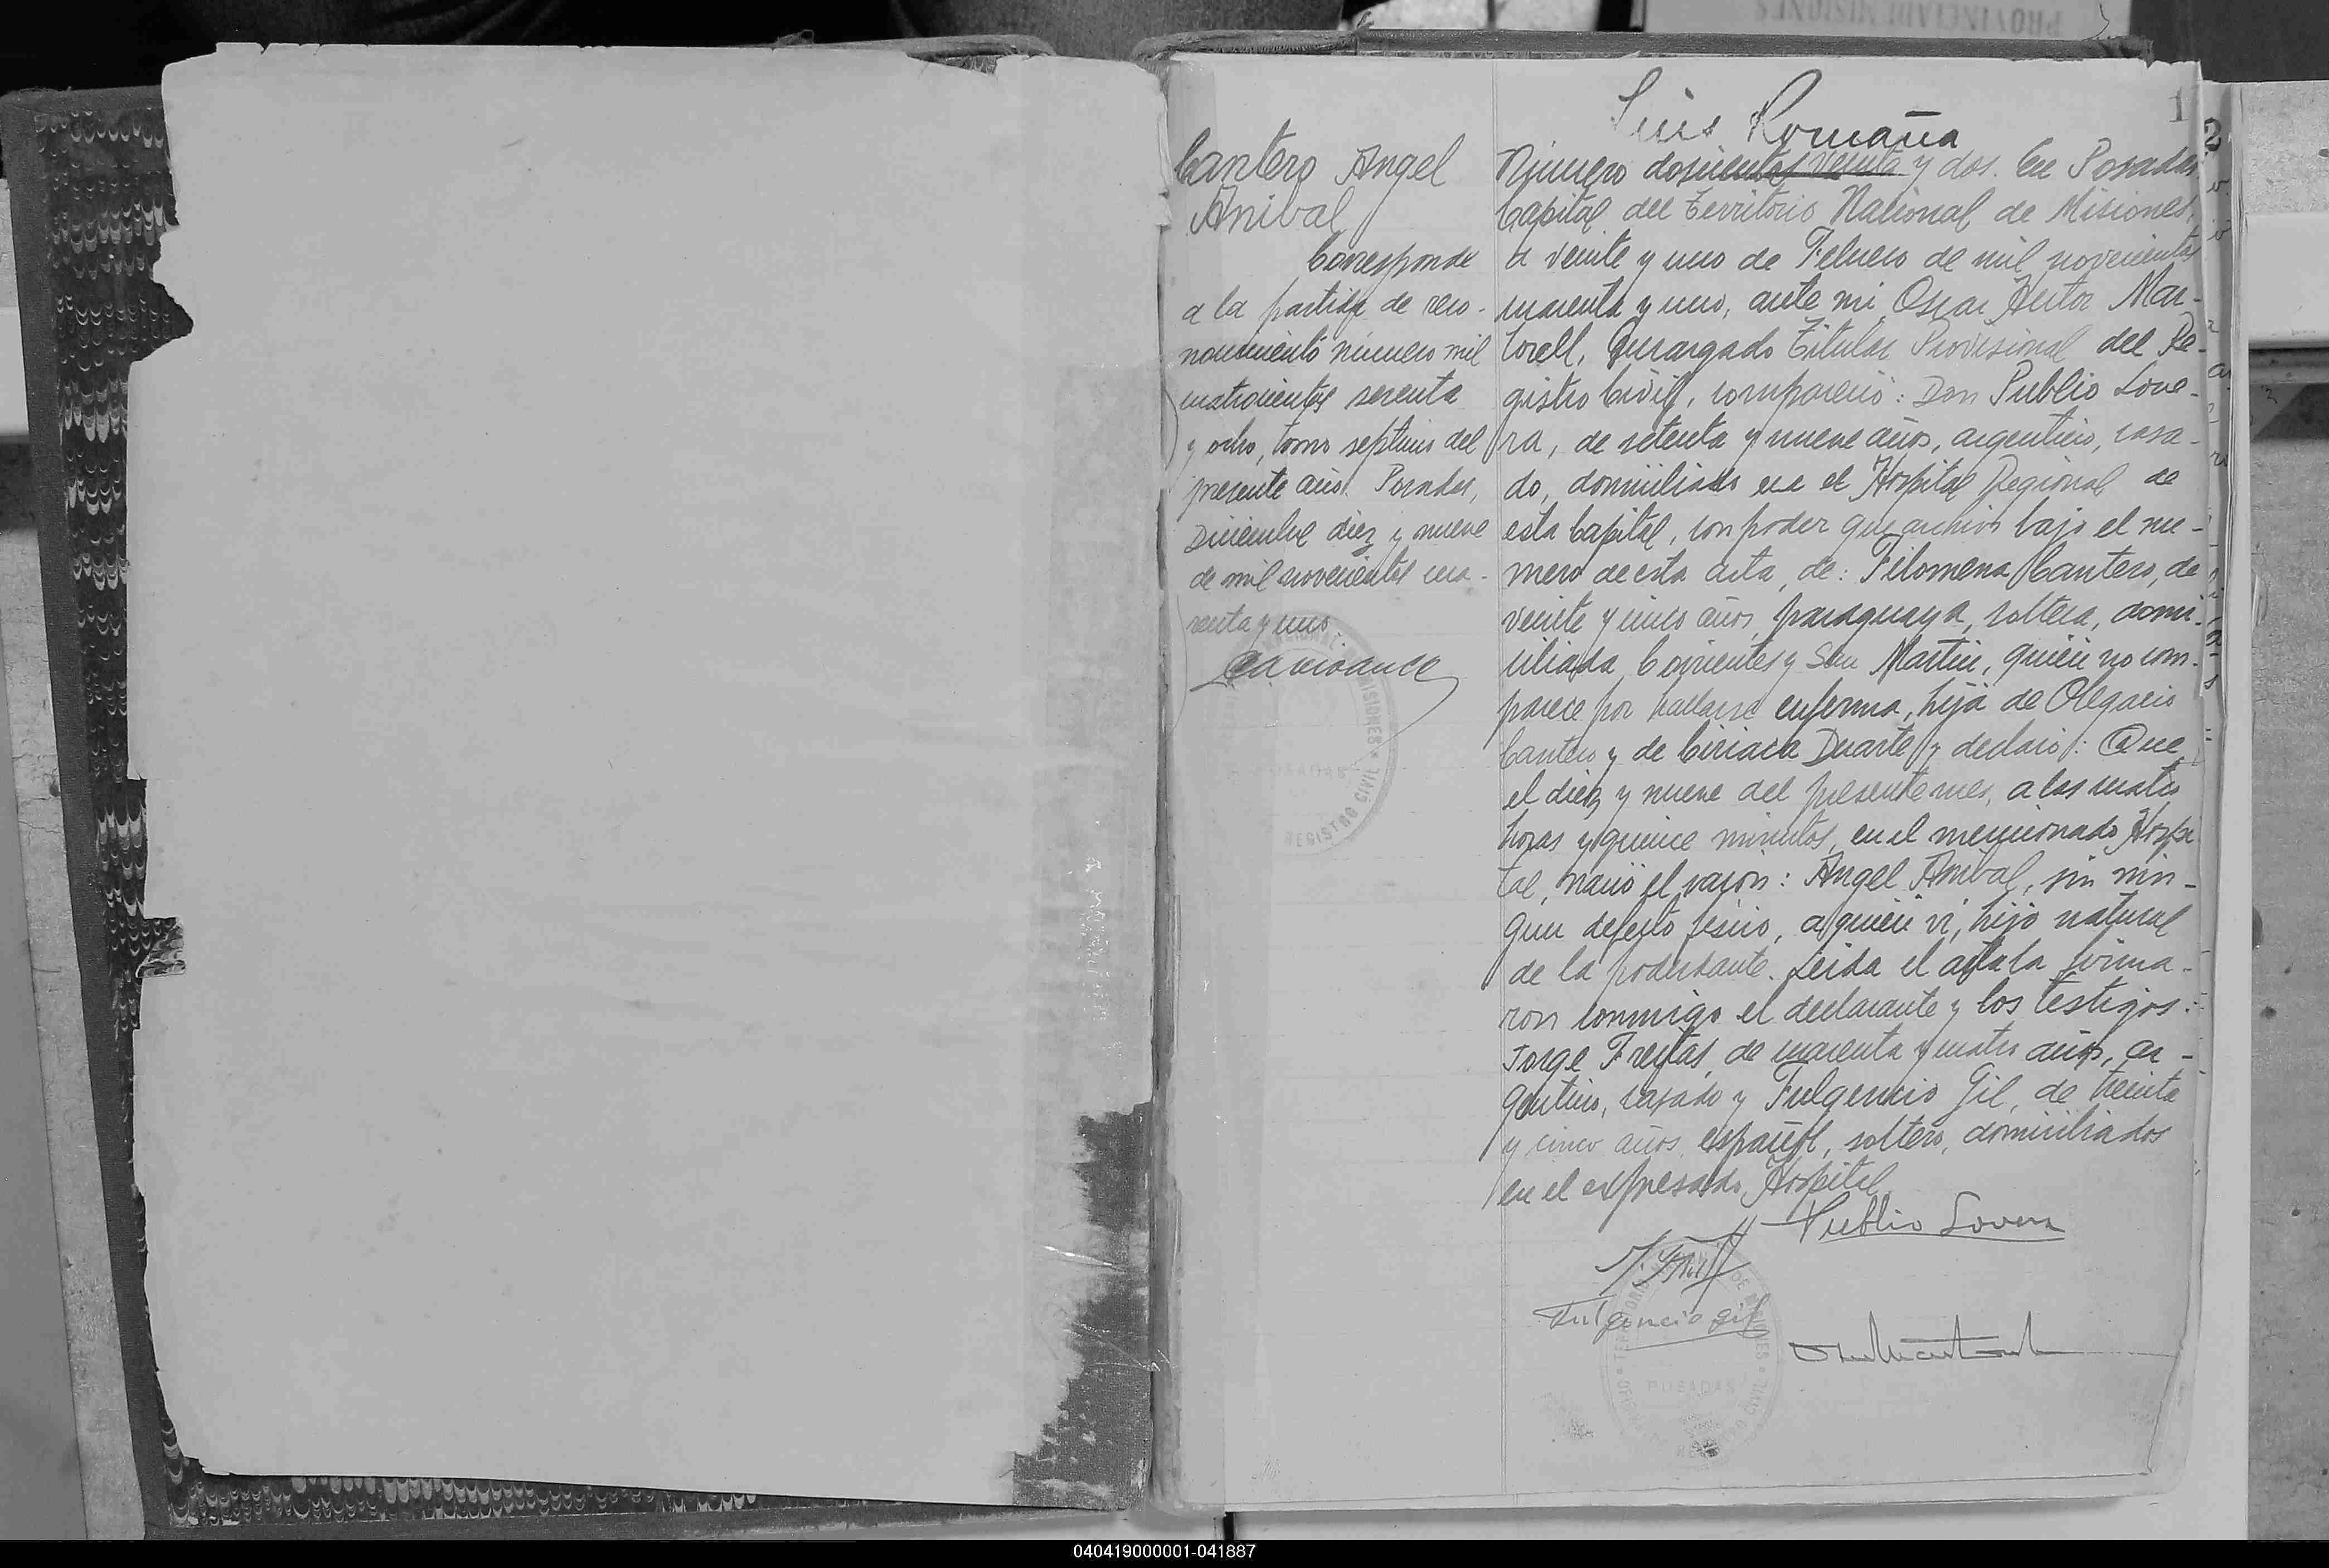 PROVINCIA DE MISIONES
1
Luis Romaña
Cantero Angel
Anibal
Corresponde
a la partida de reco-
nocimiento número mil
cuatrocientos sesenta
y ocho, tomo septimo del
presente año. Posadas,
Diciembre diez y nueve
de mil novecientos cua-
renta y uno.
Número doscientos veinte y dos. En Posadas
Capital del Territorio Nacional de Misiones,
a veinte y uno de Febrero de mil novecientos
cuarenta y uno, ante mi Oscar Hector Mar-
torell, Encargado Titular Provisional del Re-
gistro Civil, compareció: Don Publio Love-
ra, de setenta y nueve años, argentino, casa-
do, domiciliado en el Hospital Regional de
esta Capital, con poder que archivo bajo el nu-
mero de esta acta, de: Filomena Cantero, de
veinte y cinco años, paraguaya, soltera, domi-
ciliada Corrientes y San Martin, quien no com-
parece por hallarse enferma, hija de Olegario
Cantero y de Ciriaca Duarte y declaró: Que
el diez y nueve del presente mes, a las cuatro
horas y quince minutos, en el mencionado Hospi-
tal, nació el varón: Angel Anibal, sin nin-
gun defecto fisico, a quien vi, hijo natural
de la poderdante. Leida el acta la firma-
ron conmigo el declarante y los testigos:
Jorge Freytas, de cuarenta y cuatro años, ar-
gentino, casado y Fulgencio Gil, de treinta
y cinco años, español, soltero, domiciliados
en el expresado Hospital
Publio Lovera
Fulgencio Gil
POSADAS
REGISTRO CIVIL
MISIONES
040419000001-041887